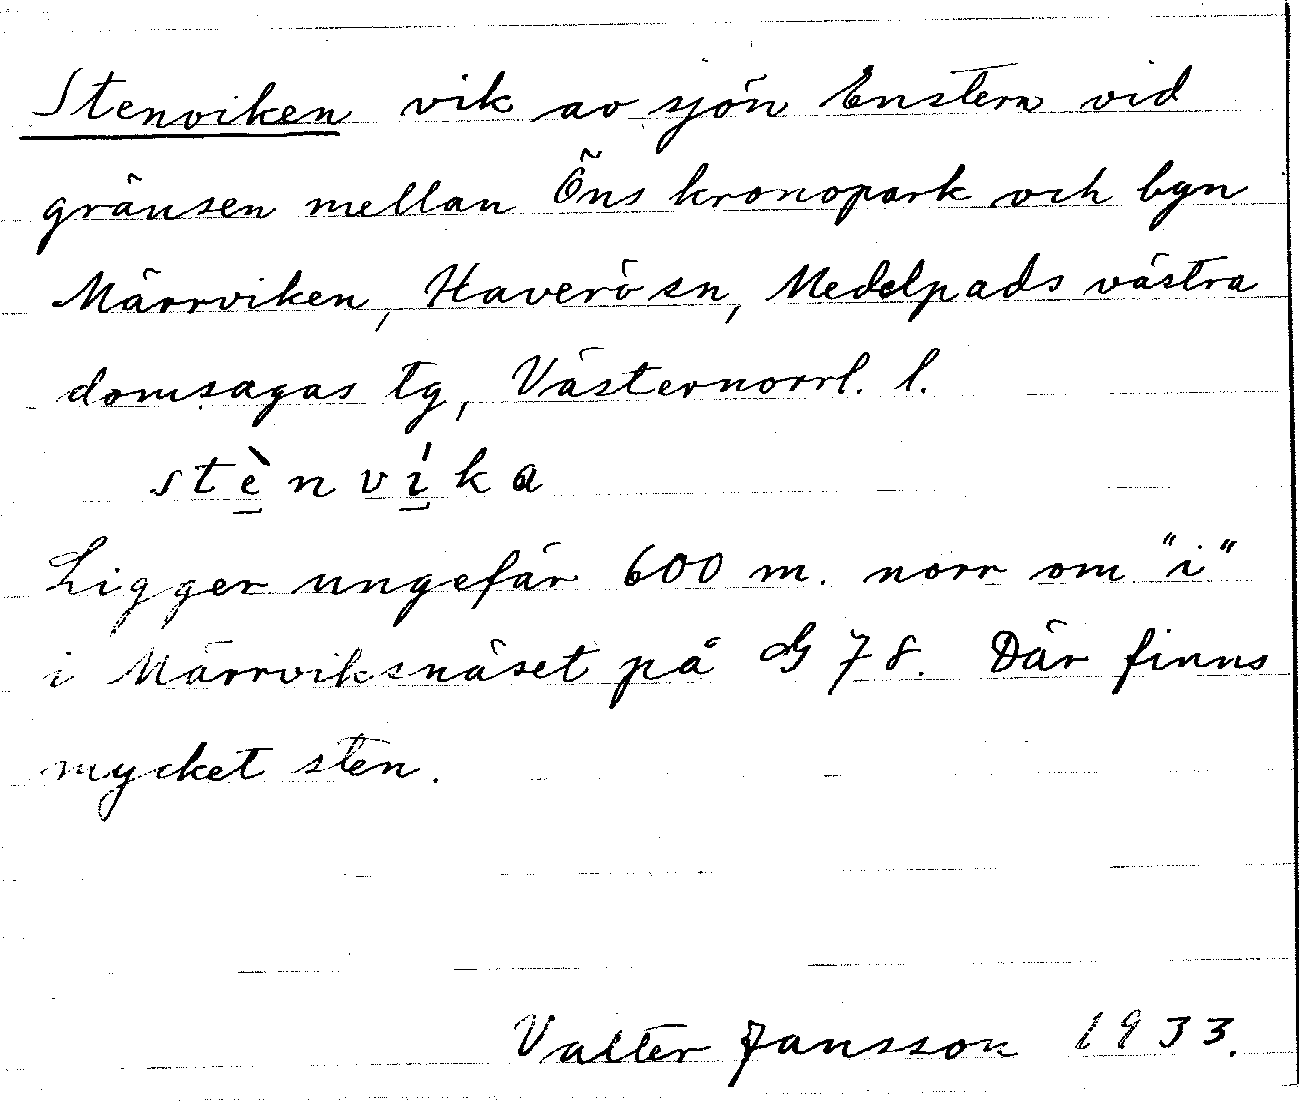 Stenviken vik av sjön Enstern vid
gränsen mellan Öns kronopark och byn
Märrviken, Haverö sn, Medelpads västra
domsagas tg, Västernorrl. l.
stè̱nví̱ka
Ligger ungefär 600 m. norr om "i"
i Märrviksnäset på G 78. Där finns
mycket sten.
Valter Jansson 1933.